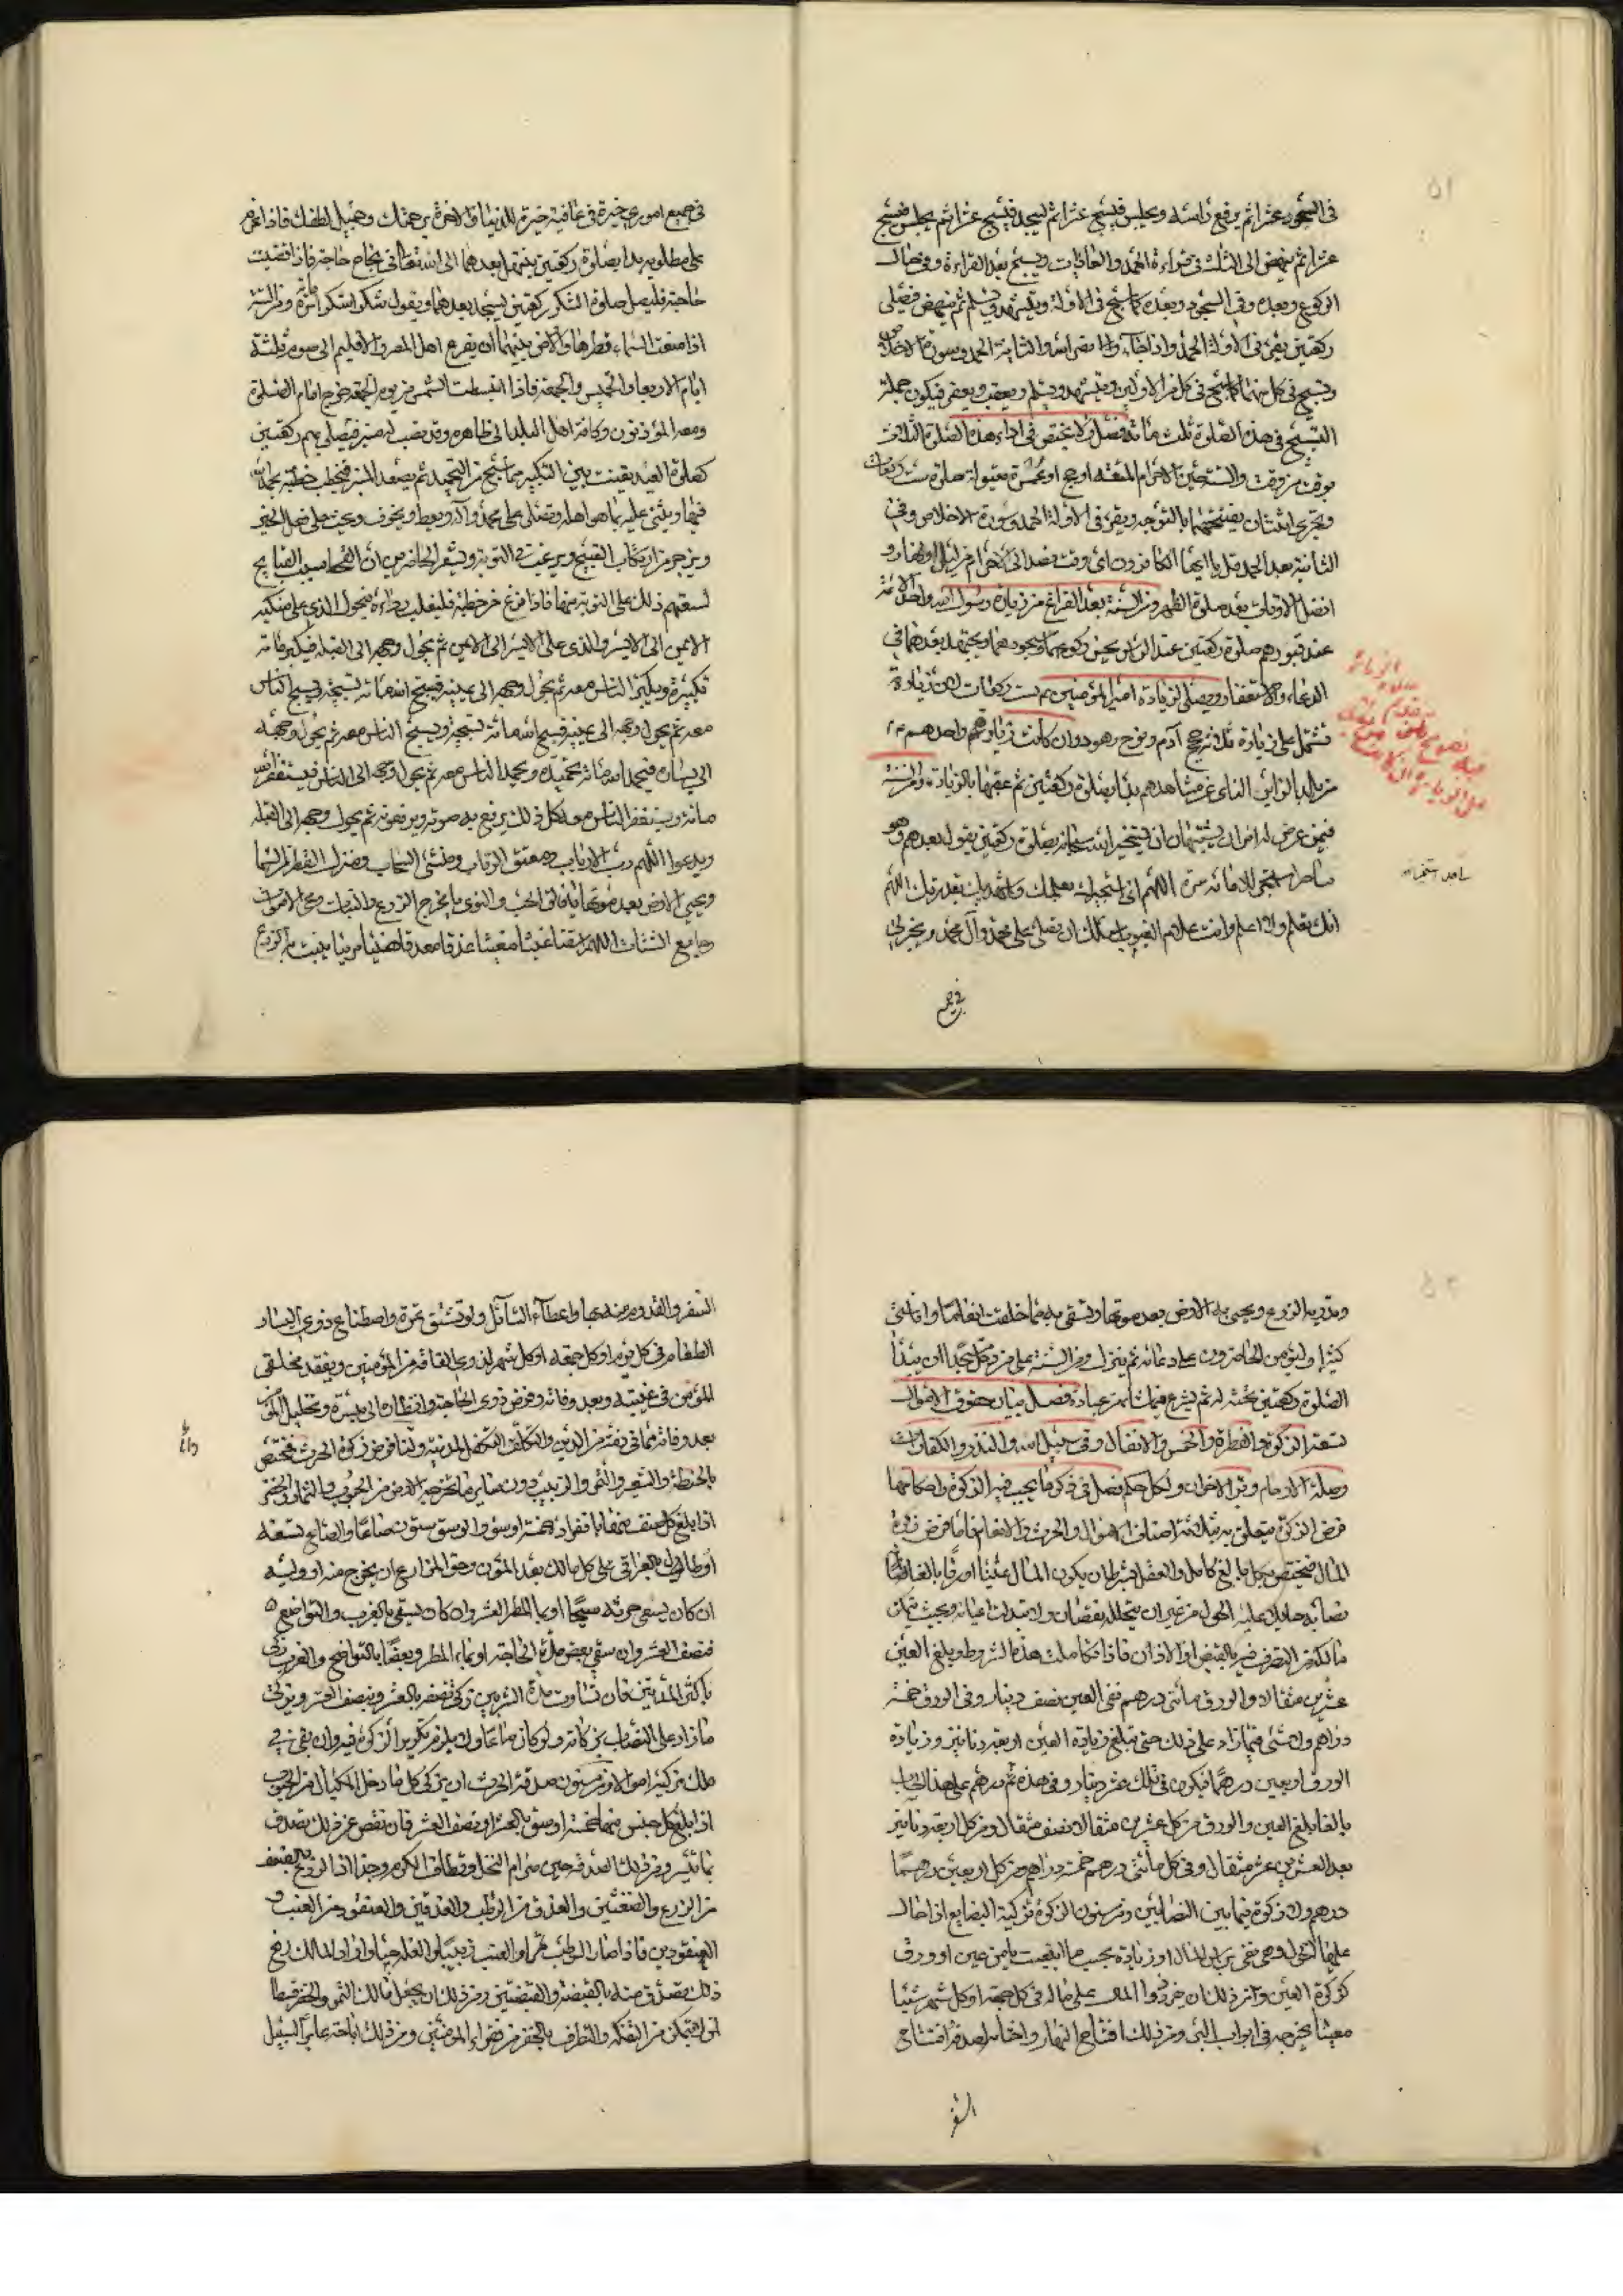 ۵۱
في السجود عشرا ثم يرفع رأسه ويجلس فيسبح عشرا ثم يسجد فيسبح عشرا ثم يجلس فيسبح
عشرا ثم ينهض الى الثالثة قراءة الحمد والعاديات ويسبح بعد القراءة وفي حال
الركوع وبعده وفي السجود وبعده كما سبح في الاولة ويتشهد ويسلم ثم ينهض فيصلي
ركعتين يقرء في الاولة الحمد واذا جاء نصر الله والثانية الحمد وسورة الاخلاص
ويسبح في كل منهما كما سبح في كل من الاولتين ويتشهد ويسلم ويعقب ويعفر فيكون جملة
التسبيح في هذه الصلوة ثلث مائة فصل ولا يختص في اداء هذه الصلوة الثلاث
بوقت من وقت والسنة حين الاحرام لمتعة او حج او عمرة مبتولة صلوة ست ركعات
ويجزي اثنتان يفتتحهما بالتوجه ويقرء في الاولة الحمد وسورة الاخلاص وفي
الثانية بعد الحمد قل يا ايها الكافرون اي وقت قصد الى الاحرام من ليل او نهار و
افضل الاوقات بعد صلوة الظهر ومن السنة بعد الفراغ من زيارة رسول الله واحد الائمة
عند قبورهم صلوة ركعتين عند الرأس يحسن ركوعهما وسجودهما ويجتهد بعدهما في
الدعاء والاستغفار ويصلي لزيارة امير المؤمنين ست ركعات لان زيارة
تشتمل على زيارة ثلث حجج آدم ونوح وهود وان كانت زيارتهم واحدهم
من البلد الزاير النائي عن مشاهدهم بدأ بصلوة ركعتين ثم عقبها بالزيارة ومن السنة
فيمن عرض له امران يشتبهان ان يستخير الله سبحانه بصلوة ركعتين يقول بعدهما وهو
ساجد استخير الله مائة مرة اللهم اني استخيرك بعلمك واستهديك بقدرتك اللهم
انك تعلم ولا اعلم وانت علام الغيوب اسئلك ان تصلي على محمد وآل محمد وتخير لي
ساجد استخير الله
في جميع
في جميع اموري خيرة في عافية خيرة للدنيا والاخرة برحمتك وجميل لطفك فاذا عزم
على مطلوبه بدأ بصلوة ركعتين يبتهل بعدهما الى الله تعالى في نجاح حاجته فاذا قضيت
حاجته فليصل صلوة الشكر ركعتين يسجد بعدهما ويقول شكرا شكرا مائة مرة ومن السنة
اذا منعت السماء قطرها والارض نبتها أن يفزع اهل المصر والاقليم الى صوم ثلثة
ايام الاربعا والخميس والجمعة فاذا انبسطت الشمس من يوم الجمعة خرج امام الصلوة
ومعه المؤذنون وكافة اهل البلد الى ظاهره وقد نصب له منبر فيصلي بهم ركعتين
كصلوة العيد يقنت بين التكبير بما سبح من التحميد ثم يصعد المنبر فيخطب خطبة بحمد الله
فيها ويثني عليه بما هو اهله ويصلي على محمد وآله ويعظ ويخوف ويحث على فعل الخير
ويزجر من ارتكاب القبيح ويرغب في التوبة ويشعر الحاضرين ان القحط بسبب القبايح
لسبقهم ذلك على التوبة منها فاذا فرغ من خطبته فليقلب رداءه فيحول الذي على منكبه
الايمن الى الايسر والذي على الايسر الى الايمن ثم يحول وجهه الى القبلة فيكبر مائة
تكبيرة ويكبر الناس معه ثم يحول وجهه الى يمينه فيسبح الله مائة تسبيحة ويسبح الناس
معه ثم يحول وجهه الى يمينه فيسبح الله مائة تسبيحة ويسبح الناس معه ثم يحول وجهه
الى يساره فيحمد الله مائة تحميدة ويحمد الناس معه ثم يحول وجهه الى الناس فيستغفر الله
مائة ويستغفر الناس معه كل ذلك يرفع به صوته ويرفعونه ثم يحول وجهه الى القبلة
ويدعوا اللهم رب الارباب ومعتق الرقاب ومنشئ السحاب ومنزل القطر من السماء
ومحيي الارض بعد موتها يا فالق الحب والنوى يا مخرج الزرع والنبات ومحيي الاموات
وجامع الشتات اللهم اسقنا غيثا مغيثا غدقا معدقا هنيئا مريئا ينبت به الزرع
۵۲
ويدر به الزرع ويحيي به الارض بعد موتها ويسقي به مما خلقت انعاما واناسي
كثيرا وليؤمن الحاضرون على دعائه ثم ينزل ومن السنة على من دخل مسجدا ان يبتدأ
الصلوة ركعتين تحية له ثم يشرع فيما شاء من عبادة فصل بيان حقوق الاموال
تسعة الزكوة والفطرة والخمس والانفال وفي سبيل الله والنذر والكفارات
وصلة الارحام وبر الاخوان ولكل حكم فصل في ذكر ما يجب فيه الزكوة واحكامها
فرض الزكوة يتعلق بثلثة اصناف الاموال والحرث والانعام فاما فرض زكوة
المال فيختص بكل بالغ كامل العقل بشرط ان يكون المال عينا او ورقا بالغا نصابا
نصابه حايلا عليه الحول من غير ان يتخلله نقصان ولا تبدلت اعيانه وبحيث يتمكن
مالكه من التصرف فيه بالقبض او الاذن فاذا تكاملت هذه الشروط وبلغ العين
عشرين مثقالا والورق مائتي درهم ففي العين نصف دينار وفي الورق خمسة
دراهم ولا شئ فيما زاد على ذلك حتى تبلغ زيادة العين اربعة دنانير وزيادة
الورق اربعين درهما فيكون في تلك عشر دينار وفي هذه درهم على هذا الحساب
بالغا ما بلغ العين والورق من كل عشرين مثقالا نصف مثقال ومن كل اربعة دنانير
بعد العشرين عشر مثقال وفي كل مائتي درهم خمسة دراهم ومن كل اربعين درهما
درهم ولا زكوة فيما بين النصابين ومن سنن الزكوة تزكية البضايع اذا حال
عليها الحول وهي تفي برأس المال او زيادة بحسب ما ابتيعت به من عين او ورق
كزكوة العين والورق ومن ذلك ان يفرض ذو المال على ماله في كل جمعة او كل شهر شيئا
معينا يخرجه في ابواب البر ومن ذلك افتتاح النهار واختتامه بصدقة وافتتاح
السفر
السفر والقدوم منه بها واعطاء السائل ولو بشق تمرة واصطناع ذوي اليسار
الطعام في كل يوم او كل جمعة او كل شهر لذوي الفاقة من المؤمنين وتفقد مخلفي
المؤمن في غيبته وبعد وفاته وقرض ذوي الحاجة وانظاره الى ميسرة وتحليل المؤمن
بعد وفاته مما في ذمته من الدين والتكفل لمدينه ولنا فرض زكوة الحرث فمختص
بالحنطة والشعير والتمر والزبيب دون ساير ما تخرجه الارض من الحبوب والثمار والخضر
اذا بلغ كل صنف منها بانفراده خمسة اوسق والوسق ستون صاعا والصاع تسعة
ارطال بالعراقي على كل مالك بعد المؤن وحق المزارع ان يخرج منه او وليه
ان كان يسقى حرثه سيحا او بماء المطر العشر وان كان يسقى بالغرب والنواضح
فنصف العشر وان سقي بعض مدة الحاجة بماء المطر وبعضها بالنواضح والغرب زكى
باكثر المدتين فان تساوت مدة الشربين زكى نصفه بالعشر ونصفه بنصف العشر ويزكى
ما زاد على النصاب بزكاته ولو كان صاعا ولا يلزم تكرير الزكوة فيه وان بقي في
ملك مزكيه احوالا ومن مسنون صدقة الحرث ان يزكي كل ما دخل المكيال من الحبوب
اذا بلغ كل جنس منها خمسة اوسق بالعشر او بنصف العشر فان نقص عن ذلك تصدق
بما تيسر ومن ذلك الصدقة حين صرام النخل وقطاف الكرم وجذاذ الزرع بالضغث
من الزرع والضغثين والعذق من الرطب والعذقين والعنقود من العنب و
العنقودين فاذا صار الرطب تمرا والعنب زبيبا والغلة حبا واراد المالك رفع
ذلك تصدق منه بالقبضة والقبضتين ومن ذلك ان يجعل مالك الثمر والخضر قسطا
لمن لا يتمكن من التفكه والتطرف بالخضر من فقراء المؤمنين ومن ذلك اباحة عابر السبيل